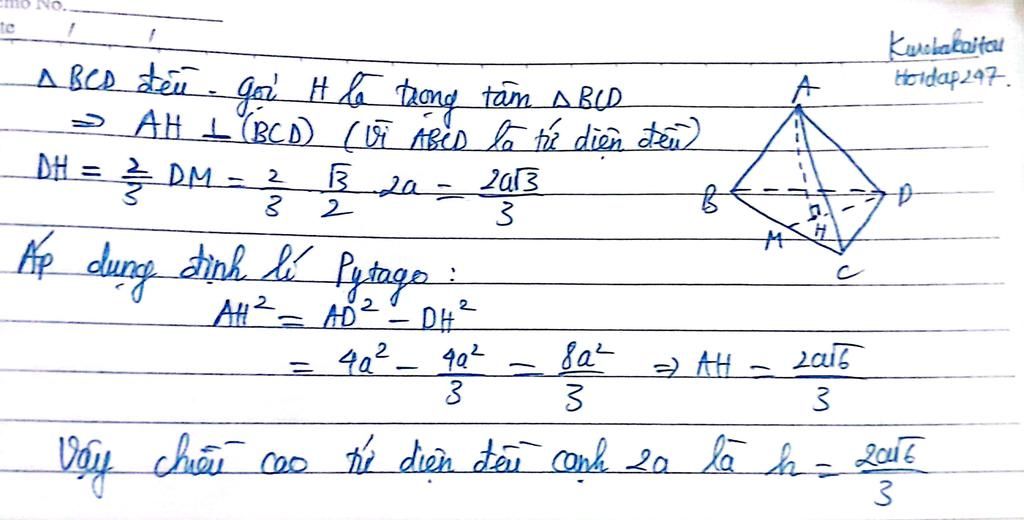 mo No.
te / /
Kurobakaitou
Hoidap247.
△BCD đều - gọi H là trọng tâm △BCD
⇒ AH ⊥ (BCD) (Vì ABCD là tứ diện đều)
DH = 2/3 DM = 2/3 √3/2 2a = 2a√3/3
A
B
D
M
H
C
Áp dụng định lí Pytago:
AH² = AD² - DH²
= 4a² - 4a²/3 = 8a²/3 ⇒ AH = 2a√6/3
Vậy chiều cao tứ diện đều cạnh 2a là h = 2a√6/3